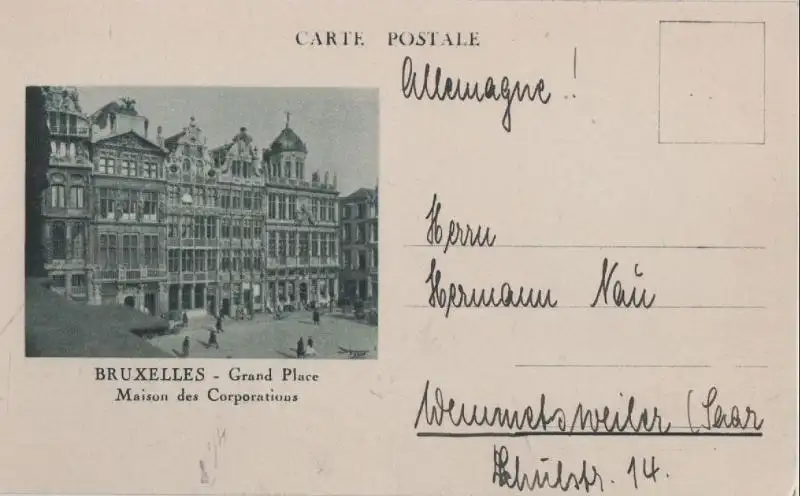 CARTE POSTALE
Allemagne!
BRUXELLES - Grand Place
Maison des Corporations
Herrn
Hermann Nau
Wemmetsweiler (Saar
Schulstr. 14.